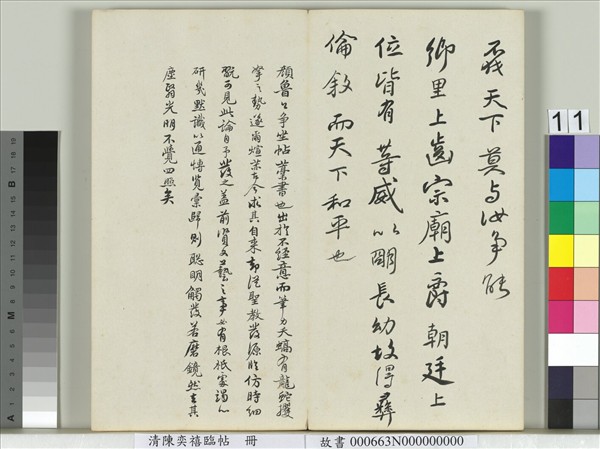 伐天下莫与汝争能
鄉里上齒宗廟上爵朝廷上
位皆有等威以明長幼故得彝
倫敘而天下和平也
顏魯公争坐帖藁書也出於不經意而筆力夭矯有龍蛇攫
拏之勢遂爾煊赫至今求其自来却從聖教發源臨仿時細
翫可見此論自予發之蓋前賢文藝之事必有根柢家竭心
研幾默識以通博覽彙歸則聰明觸發若磨鏡然去其
塵翳光明不覺四照矣
11
清陳奕禧臨帖 冊
故書 000663N000000000
A 1 2 3 4 5 6 M 8 9 10 11 12 13 14 15 B 17 18 19